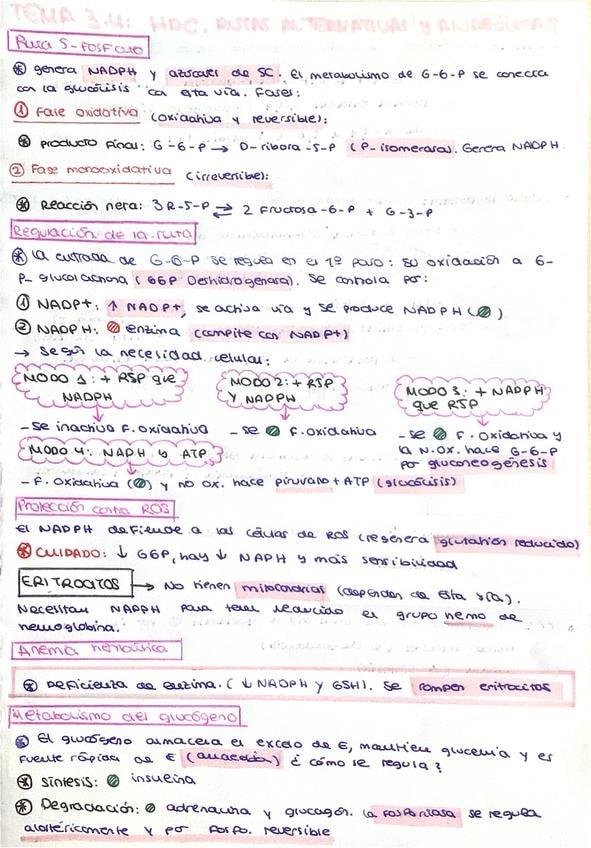 TEMA 3.4: HDC. RUTAS ALTERNATIVAS y ANABÓLICAS
Ruta 5-fosfato
genera NADPH y azúcares de 5C. El metabolismo de G-6-P se conecta
con la glucólisis con esta vía. Fases:
① Fase oxidativa (oxidativa y reversible):
Producto final: G-6-P → D-ribosa-5-P (P-isomerasa). Genera NADPH.
② Fase monooxidativa (irreversible):
Reacción neta: 3 R-5-P ⇄ 2 Fructosa-6-P + G-3-P
Regulación de la ruta
La entrada de G-6-P se regula en el 1º paso: su oxidación a 6-
P- glucolactona (G6P Deshidrogenasa). Se controla por:
① NADP+: ↑ NADP+, se activa vía y se produce NADPH ( )
② NADPH: enzima (compite con NADP+)
→ Según la necesidad celular:
MODO 1: + R5P que
NADPH
- Se inactiva F. oxidativa
MODO 2: + R5P
Y NADPH
- se F. oxidativa
MODO 3: + NADPH
que R5P
- se F. oxidativa y
la N.OX. hace G-6-P
por gluconeogénesis
MODO 4: NADPH y ATP
- F. oxidativa ( ) y no ox. hace piruvato + ATP (glucólisis)
Protección contra ROS
El NADPH defiende a las células de ROS (regenera glutatión reducido)
CUIDADO: ↓ G6P, hay ↓ NAPH y más sensibilidad
ERITROCITOS → No tienen mitocondrias (dependen de esta vía).
Necesitan NADPH para tener reducido el grupo hemo de
hemoglobina.
Anemia hemolítica
Deficiencia de enzima. (↓ NADPH y GSH). Se rompen eritrocitos
Metabolismo del glucógeno
El glucógeno almacena el exceso de E, mantiene glucemia y es
fuente rápida de E (anaerobia) ¿cómo se regula?
Síntesis: insulina
Degradación: adrenalina y glucagón. La fosforilasa se regula
alostéricamente y por fosfo. reversible